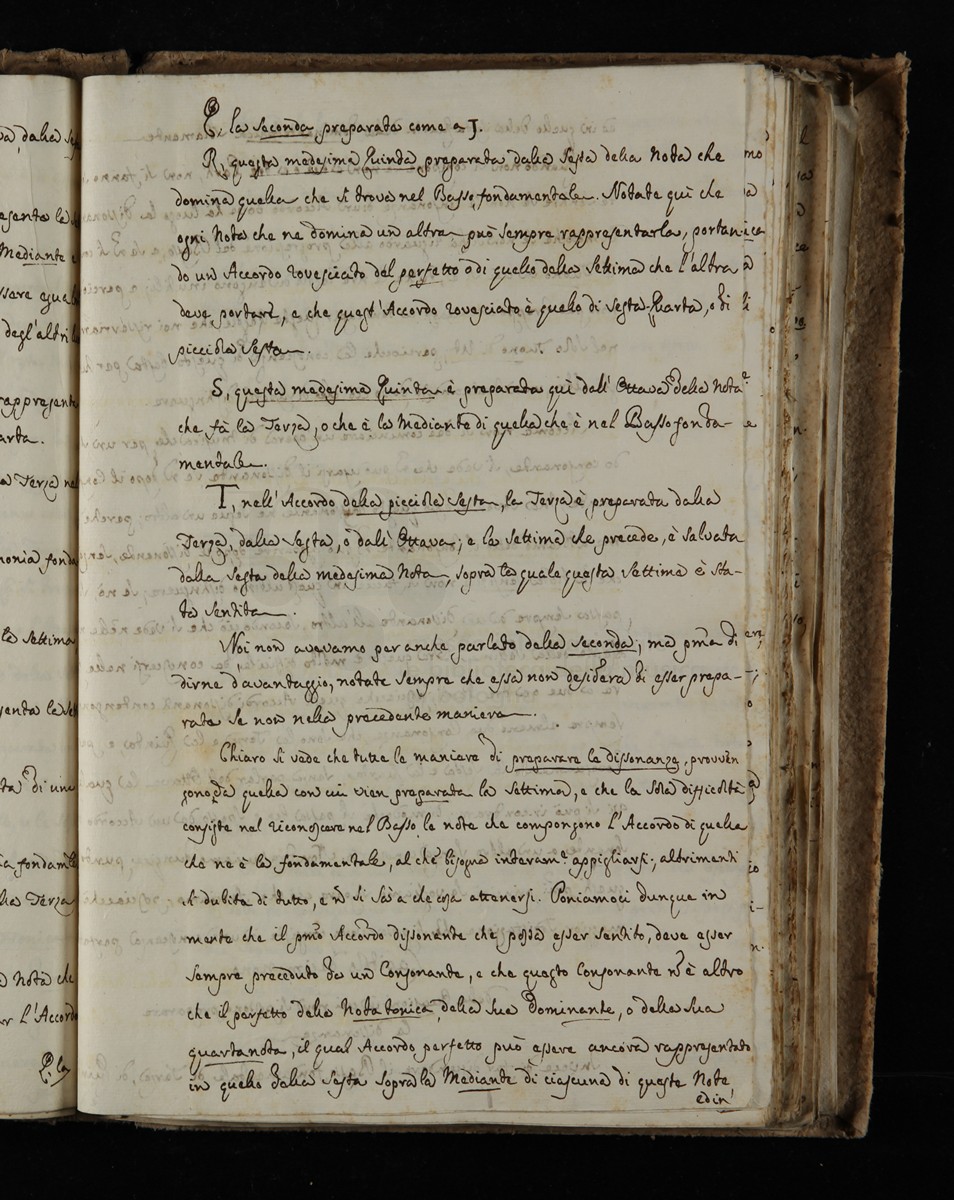 Q, la seconda preparata come a J.
R, questa medesima Quinta preparata dalla Sesta della Nota che
domina quella che si trova nel Basso fondamentale. Notate quì che
ogni Nota che ne domina un altra può sempre rappresentarla, portan-
do un Accordo rovesciato del perfetto ò di quello della Settima che l'altra
deve portare, e che quest'Accordo rovesciato è quello di Sesta-Quarta, o di
picciola Sesta.
S, questa medesima Quinta è preparata quì dall'Ottava della Nota
che fà la Terza, o che è la Mediante di quella che è nel Basso fonda-
mentale.
T, nell'Accordo della picciola Sesta, la Terza è preparata dalla
Terza, dalla Sesta, ò dall'Ottava; e la Settima che precede, è salvata
dalla Sesta della medesima Nota, sopra la quale questa Settima è sta-
ta sentita.
Noi non avevamo per anche parlato della seconda; ma pma di
dirne d'avantaggio, notate sempre che essa non desidera di esser prepa-
rata se non nella precedente maniera.
Chiaro si vede che tutte le maniere di preparare la dissonanza, proven
gono da quella con cui vien preparata la Settima, e che la sola difficoltà
consiste nel riconoscere nel Basso le note che compongono l'Accordo di quella
che ne è la fondamentale, al che bisogna interam.e appigliarsi; altrimenti
si dubita di tutto, e n si sà a che cosa attenersi. Poniamoci dunque in
mente che il pmo Accordo dissonante che possa esser sentito, deve esser
sempre preceduto da un Consonante, e che questo Consonante n è altro
che il perfetto della Nota tonica, della sua Dominante, o della sua
quarta nota, il qual Accordo perfetto può essere ancora rappresentato
in quello dalla Sesta sopra la Mediante di ciascuna di queste Note,
ed in